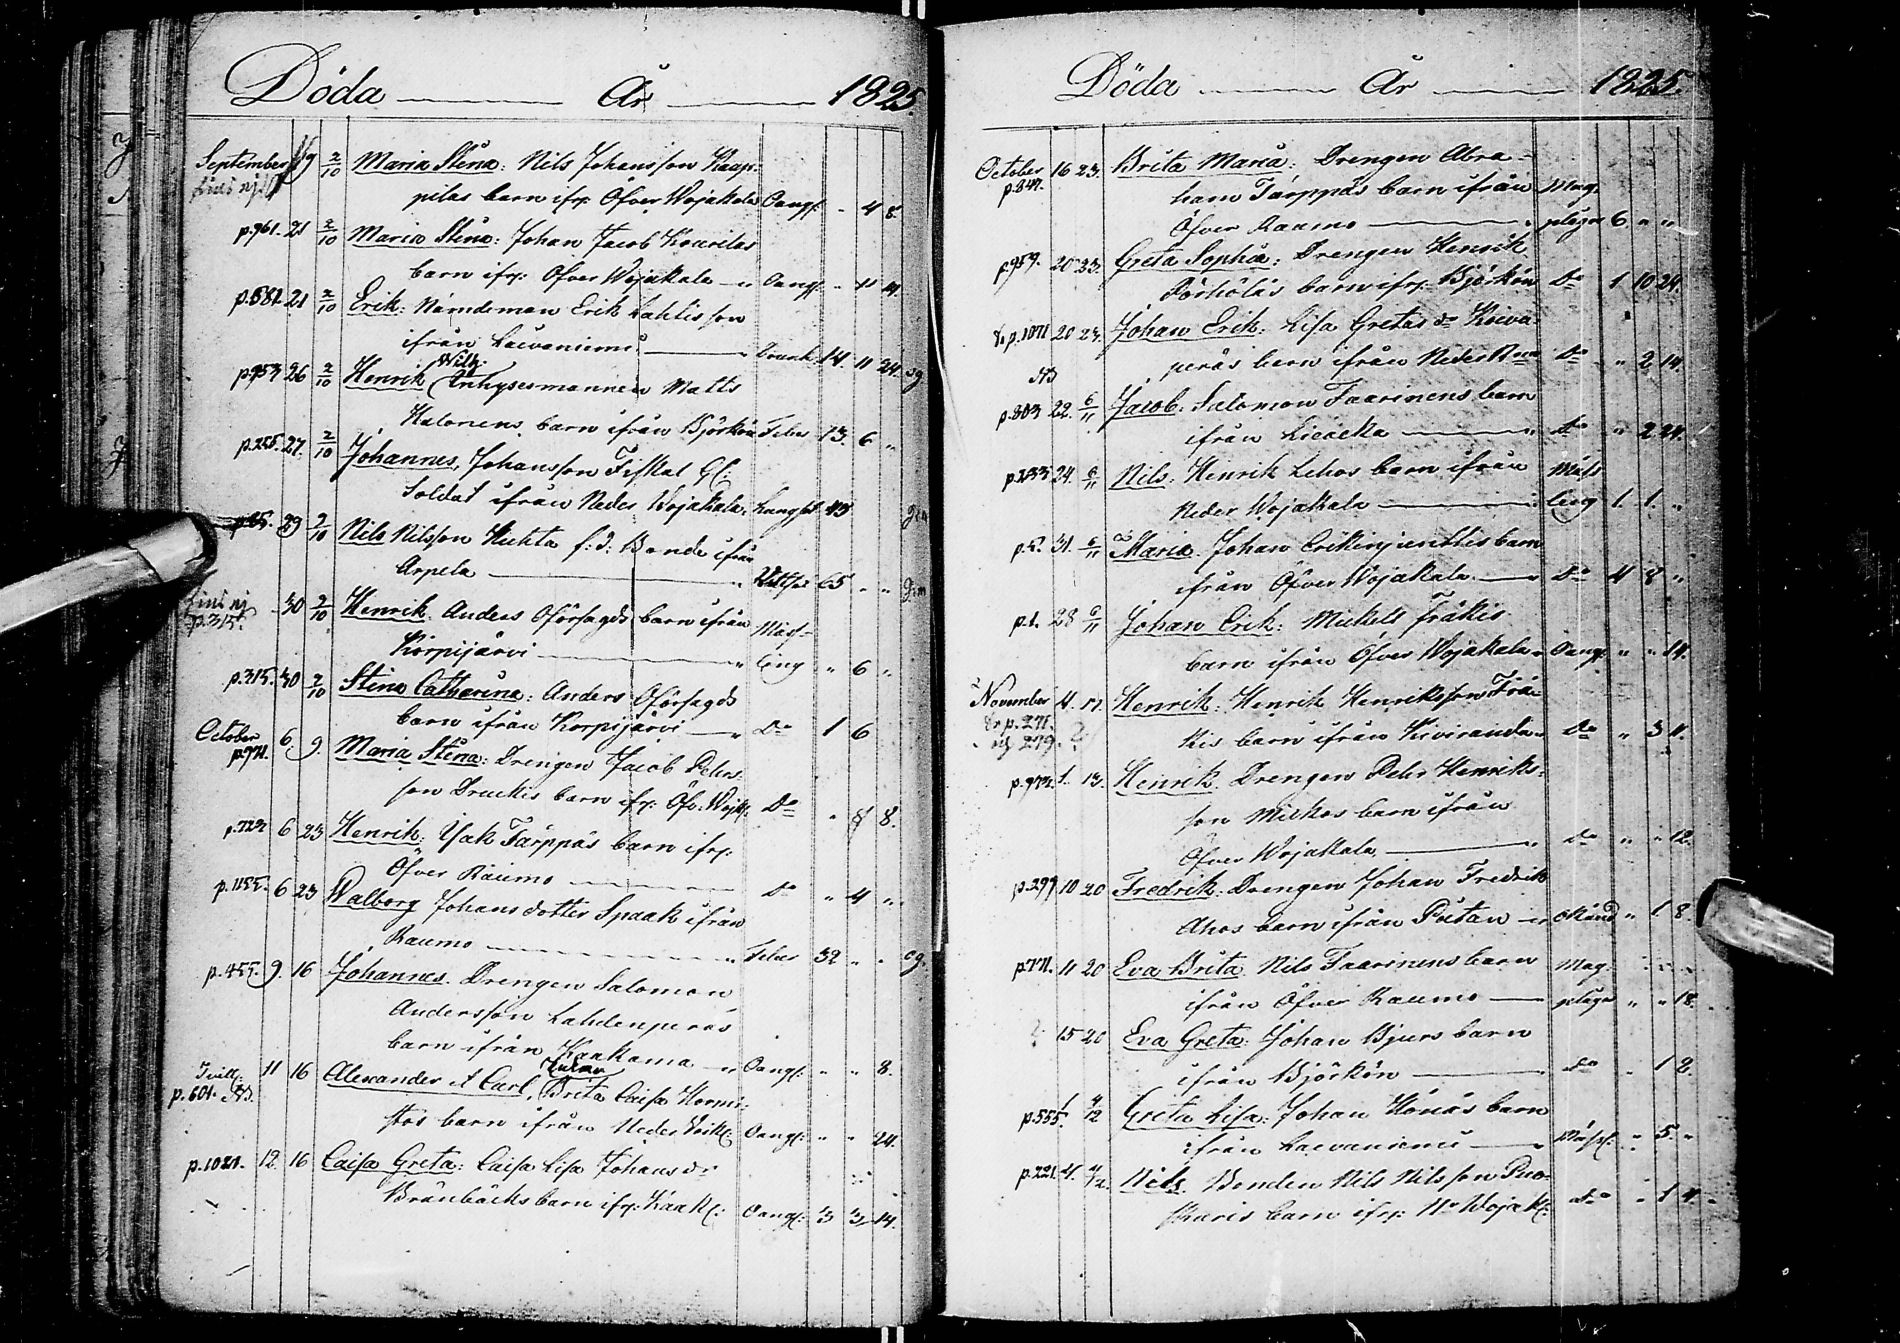 Döda År 1825.
September 19 2/10 Maria Stina: Nils Johansson Kaup-
pilas barn ifr: Öfver Wojakala Oangf: " 4 8.
p.961. 21 2/10 Maria Stina: Johan Jacob
barn ifr: Öfver Wojakala Oangf: " 11 14.
p.581. 21 2/10 Erik: Nämndeman Erik Lahtis son
ifrån Laivaniemi Drunk. 14. 11 24.
p.953 26 2/10 Henrik Wilh: Inhysesmannen Matts
Halonens barn ifrån Björkön Feber 13. 6 "
p.255. 27. 2/10 Johannes, Johansson Fiskal
Soldat ifrån Neder Wojakala. Lungsot 43
29 2/10 Nils Nilsson Huhta f:d: Bonde ifrån
Arpela 65 " "
p.315. 30 2/10 Henrik. Anders Oförsagds barn ifrån
Korpijärvi Mäss-ling " 6 "
p.315. 30 2/10 Stina Catharina: Anders Oförsagds
barn ifrån Korpijärvi Do 1 6
October
p.971. 6. 9. Maria Stina: Drengen Jacob Peters-
son barn ifr: Öfv: Wojk: Do " 8 8.
p.723 6 23 Henrik: Isak Tarppas barn ifr:
Öfver Raumo Do " 4 "
p.1155. 6 23 Walborg Johansdotter Spaak ifrån
Raumo Feber 32 " "
p.455. 9. 16 Johannes. Drengen Salomon
Andersson Lahdenperäs
barn ifrån Kaakama Oangf: " " 8.
Tvill:
p.601. 11 16 Alexander et Carl, Brita Caisa
barn ifrån Neder Oangf: " " 24.
p.1021. 12. 16 Caisa Greta: Caisa Lisa Johansdr
Brännbäcks barn ifr: Kaak: Oangf: 3 3 14.
Döda År 1825.
October 16 23. Brita Maria: Drengen Abra-
ham Tarppas barn ifrån Mag-
Öfver Raumo plågor 6. " "
p.959. 20 23. Greta Sophia: Drengen Henrik
Pörhöläs barn ifr: Björkön Do 1 10 24.
p.1071 20 23. Johan Erik: Lisa Gretas dr Koiva-
peräs barn ifrån Neder Do " 2 14.
p.803 22. 6/11 Jacob: Salomon Taarinens barn
ifrån Liedeka Do " 2 24.
p.233 24. 6/11 Nils: Henrik Lehos barn ifrån Mäss
Neder Wojakala ling 1. 1. "
p.5. 31. 6/11 Maria. Johan barn
ifrån Öfver Wojakala Do 4 8 "
p.1. 28 6/11 Johan Erik: Mickels Träkis
barn ifrån Öfver Wojakala Oangf: " " 14.
November 4. 17. Henrik: Henrik Henriksson Trä-
p.271.
279. ? kis barn ifrån Kiviranda Do " 3 4.
p.973. 1. 13. Henrik. Drengen Peter Henriks-
son Mickos barn ifrån
Öfver Wojakala Do " " 12.
p.299 10 20 Fredrik. Drengen Johan Fredrik
Ahos barn ifrån Pictan " 1 8.
p.771. 11 20 Eva Brita. Nils Taarinens barn Mag-
ifrån Öfver Raumo plågor " " 18.
? 15 20 Eva Greta: Johan Bjurs barn
ifrån Björkön Do " 1 2.
p.555. 1. 4/12 Greta Lisa: Johan Könäs barn
ifrån Laivaniemi Mässl: " 5. "
p.221. 4. 4/12. Nils. Bonden Nils Nilsson Ruo-
barn ifr: Nr Wojak: Do " 1 4